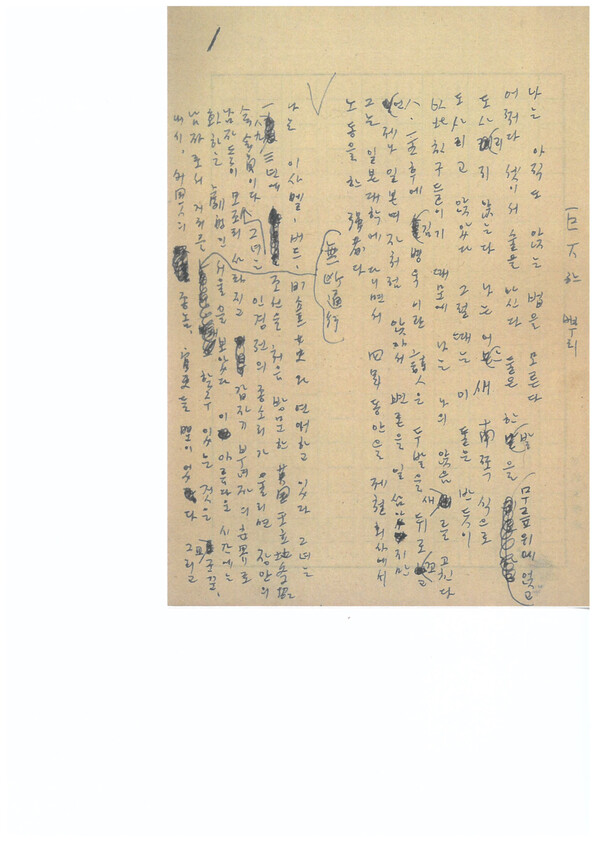 1
巨大한 뿌리
나는 아직도 앉는 법을 모른다
어쩌다 셋이서 술을 마신다 둘은 한 발을 무릎위에 얹고
도사리지 않는다 나는 어느새 南쪽 식으로
도사리고 앉았다 그럴때는 이 둘은 반드시
以北친구들이기 때문에 나는 나의 앉음새를 고친다
八·一五후에 김병욱이란 詩人은 두발을 뒤로 꼬고
언제나 일본여자처럼 앉아서 변론을 일삼았지만
그는 일본대학에 다니면서 四年동안을 제철회사에서
노동을 한 强者다
나는 이사벨·버드·비숍女史와 연애하고 있다 그녀는
一八九三년에 조선을 처음 방문한 英國王立地學協
會會員이다 그녀는 인경전의 종소리가 울리면 장안의
남자들이 모조리 사라지고 갑자기 부녀자의 世界로
화하는 劇的인 서울을 보았다 이 아름다운 시간에는
남자로서 거리를 無斷通行할 수 있는 것은 교군꾼,
내시, 外國人의 종놈, 官吏들 뿐이었다 그리고